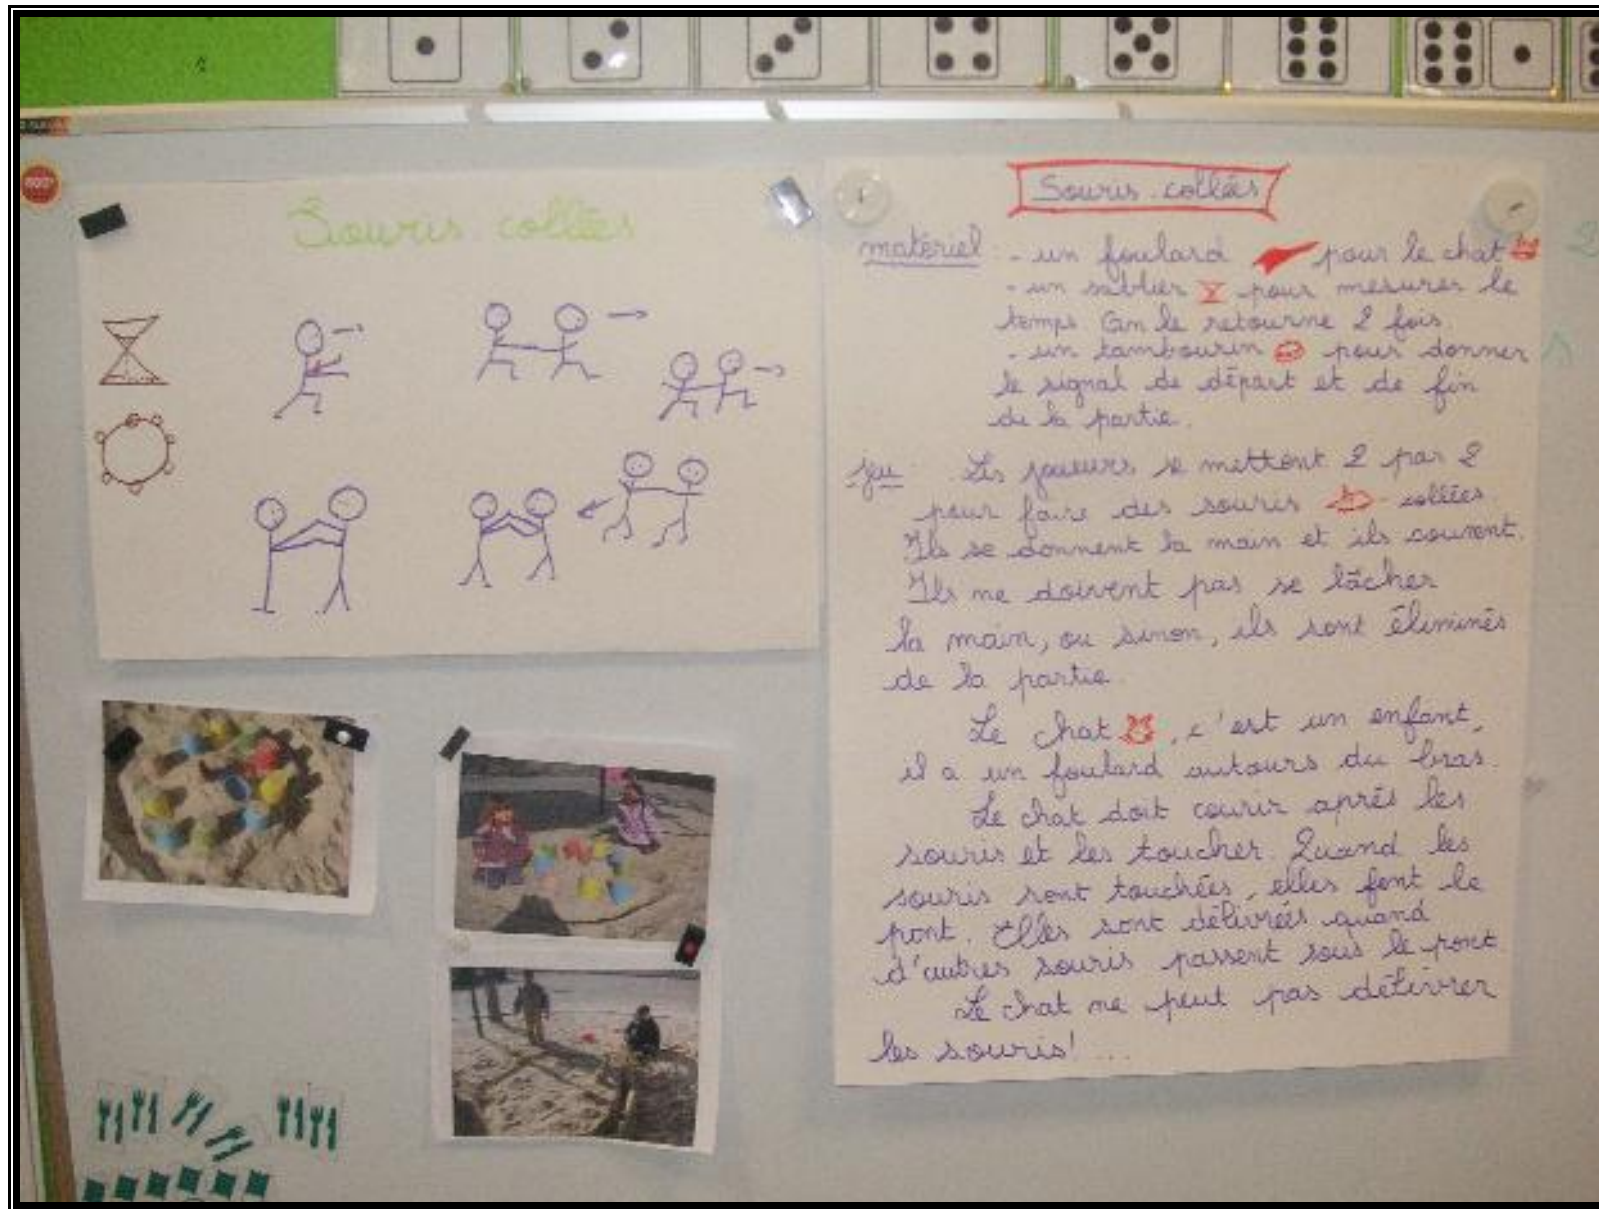 Souris collées
Souris collées
matériel : - un foulard pour le chat
- un sablier pour mesurer le
temps (on le retourne 2 fois.
- un tambourin pour donner
le signal de départ et de fin
de la partie.
jeu : Les joueurs se mettent 2 par 2
pour faire des souris collées.
Ils se donnent la main et ils courent.
Ils ne doivent pas se lâcher
la main, ou sinon, ils sont éliminés
de la partie.
Le chat, c'est un enfant,
il a un foulard autours du bras.
Le chat doit courir après les
souris et les toucher. Quand les
souris sont touchées, elles font le
pont. Elles sont délivrées quand
d'autres souris passent sous le pont.
Le chat ne peut pas délivrer
les souris! ...